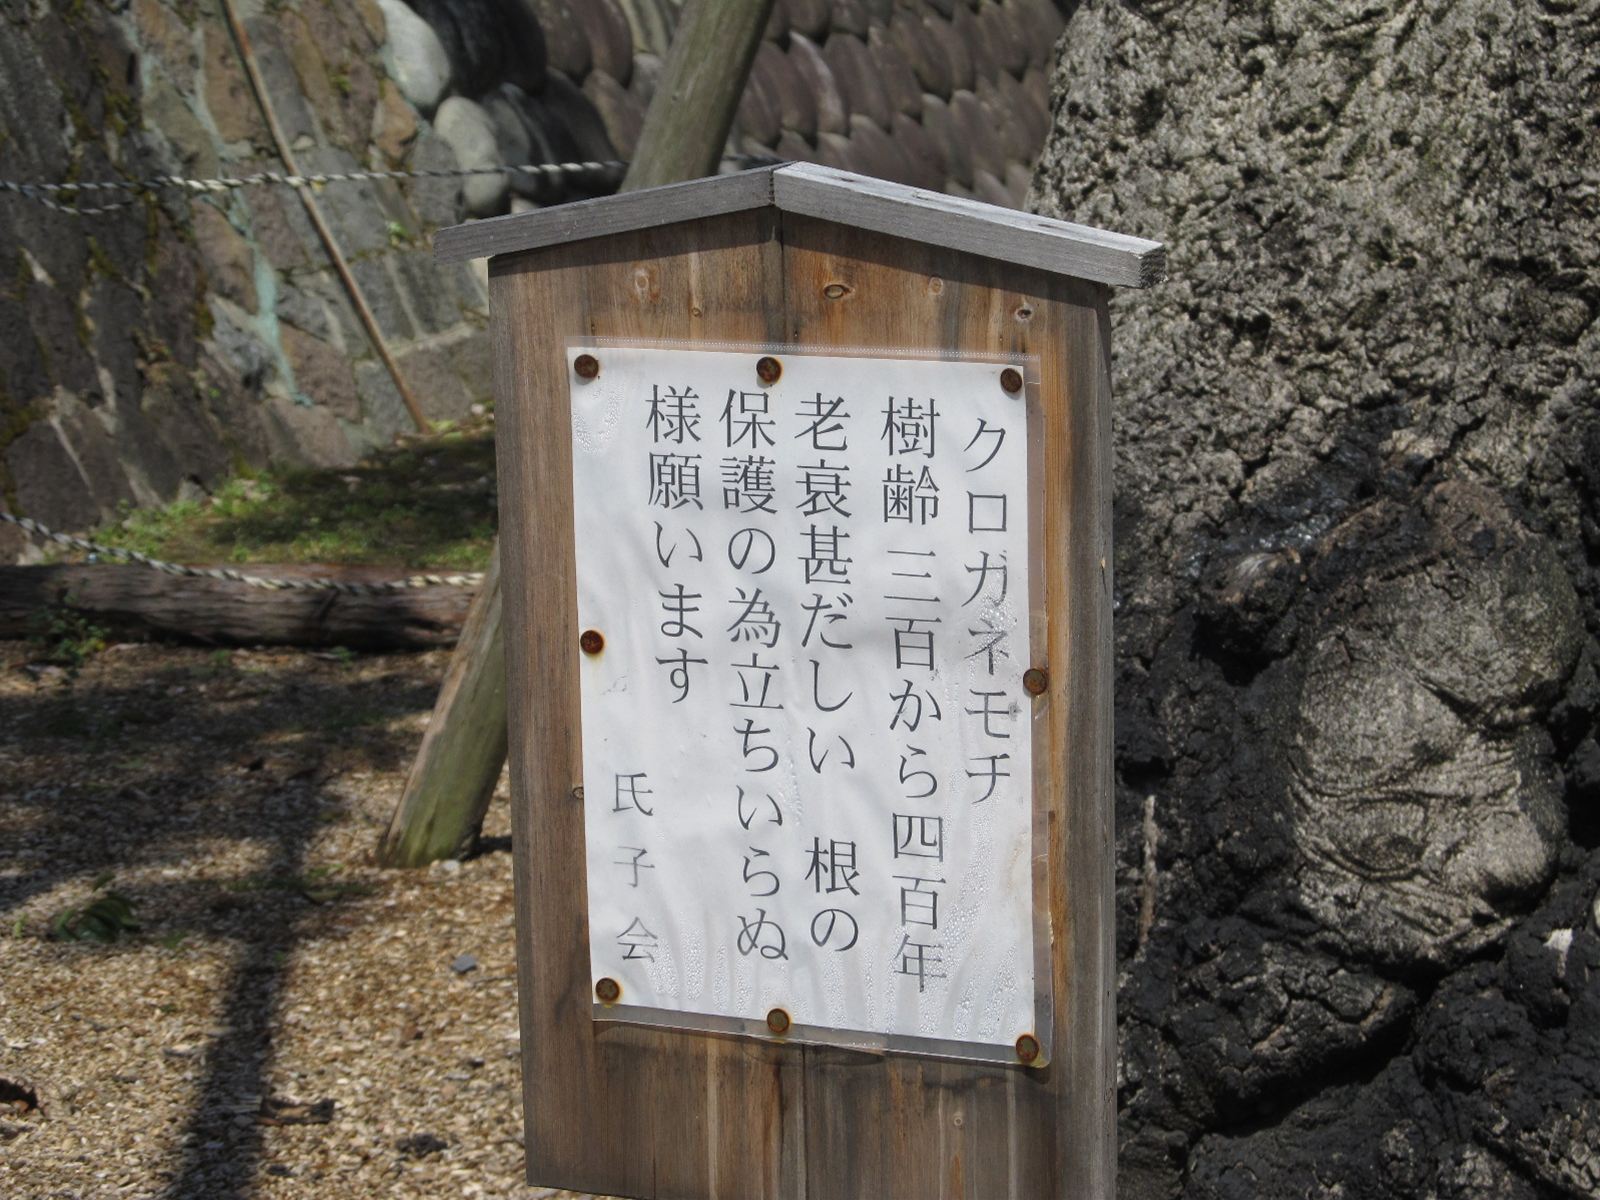 クロガネモチ
樹齢 三百から四百年
老衰甚だしい 根の
保護の為立ちいらぬ
様願います
氏子会